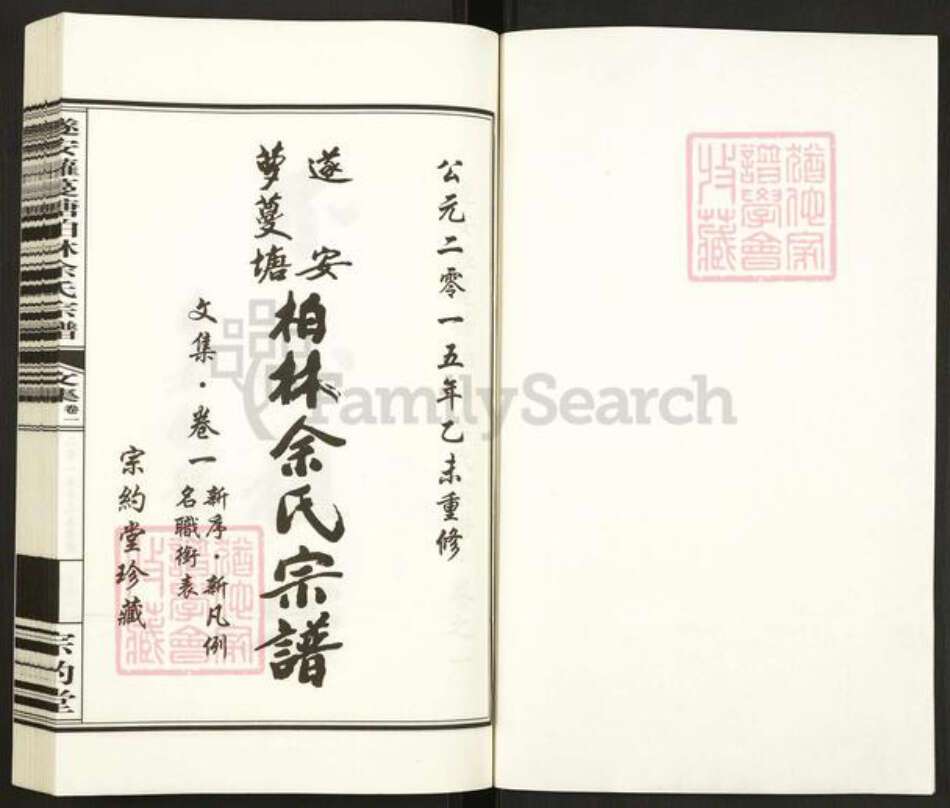 猶他家
譜學會
收藏
公元二零一五年乙未重修
遂安
萝蔓塘
柏林余氏宗譜
文集·卷一
新序·新凡例
名職銜表
宗約堂珍藏
猶他家
譜學會
收藏
遂安蘿蔓塘柏林余氏宗譜
文集
卷一
宗約堂
FamilySearch